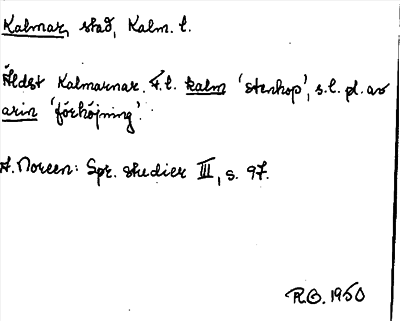 Kalmar, stad, Kalm. l.
Äldst Kalmarnar. F.l. kalm 'stenhop', s.l. pl. av
arin 'förhöjning'.
A. Noreen: Spr. studier III, s. 97.
R.O. 1950